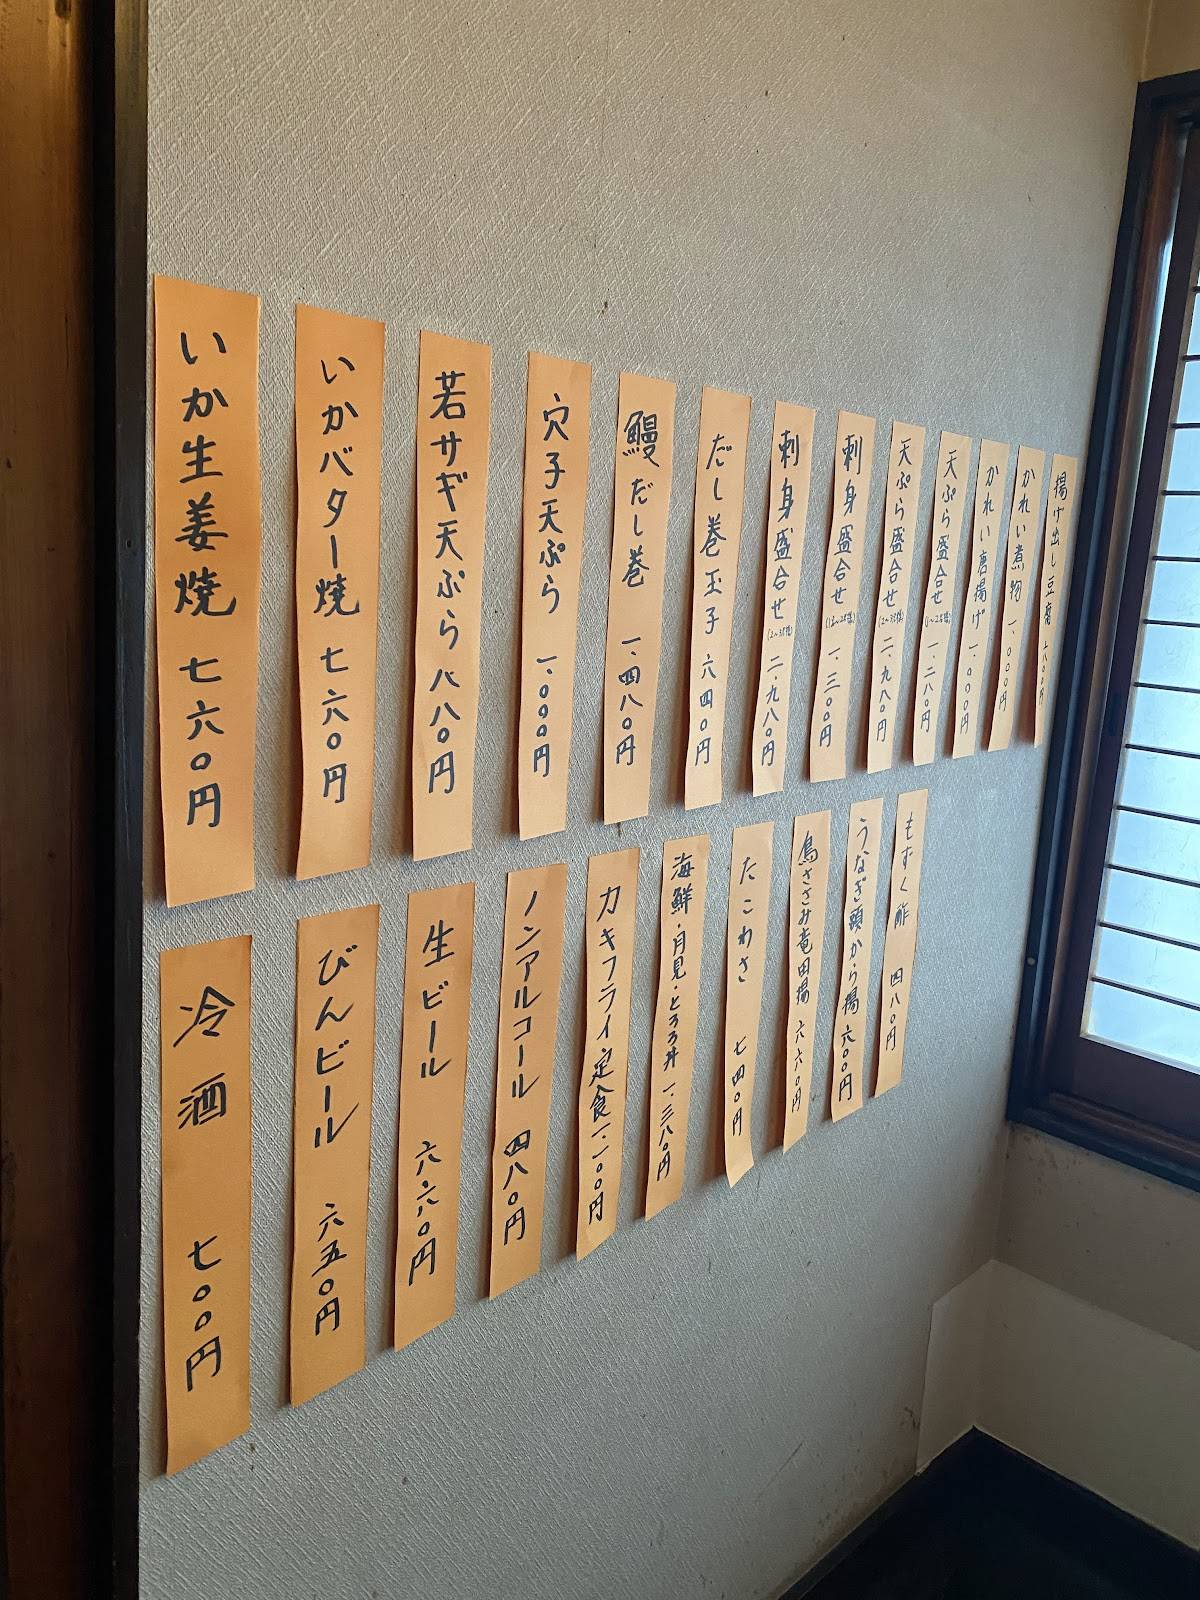 揚げ出し豆腐
かれい煮物 一、〇〇〇円
かれい唐揚げ 一、〇〇〇円
天ぷら盛合せ(1〜2名様) 一、二八〇円
天ぷら盛合せ(2〜3名様) 二、九八〇円
刺身盛合せ(1〜2名様) 一、三〇〇円
刺身盛合せ(2〜3名様) 二、九八〇円
だし巻玉子 六四〇円
鰻だし巻 一、四八〇円
穴子天ぷら 一、〇〇〇円
若サギ天ぷら 八八〇円
いかバター焼 七六〇円
いか生姜焼 七六〇円
もずく酢 四八〇円
うなぎ頭から揚 六〇〇円
鳥ささみ竜田揚 六六〇円
たこわさ 七四〇円
海鮮・月見・とろろ丼 一、三八〇円
カキフライ定食 一、一〇〇円
ノンアルコール 四八〇円
生ビール 六六〇円
びんビール 六五〇円
冷酒 七〇〇円